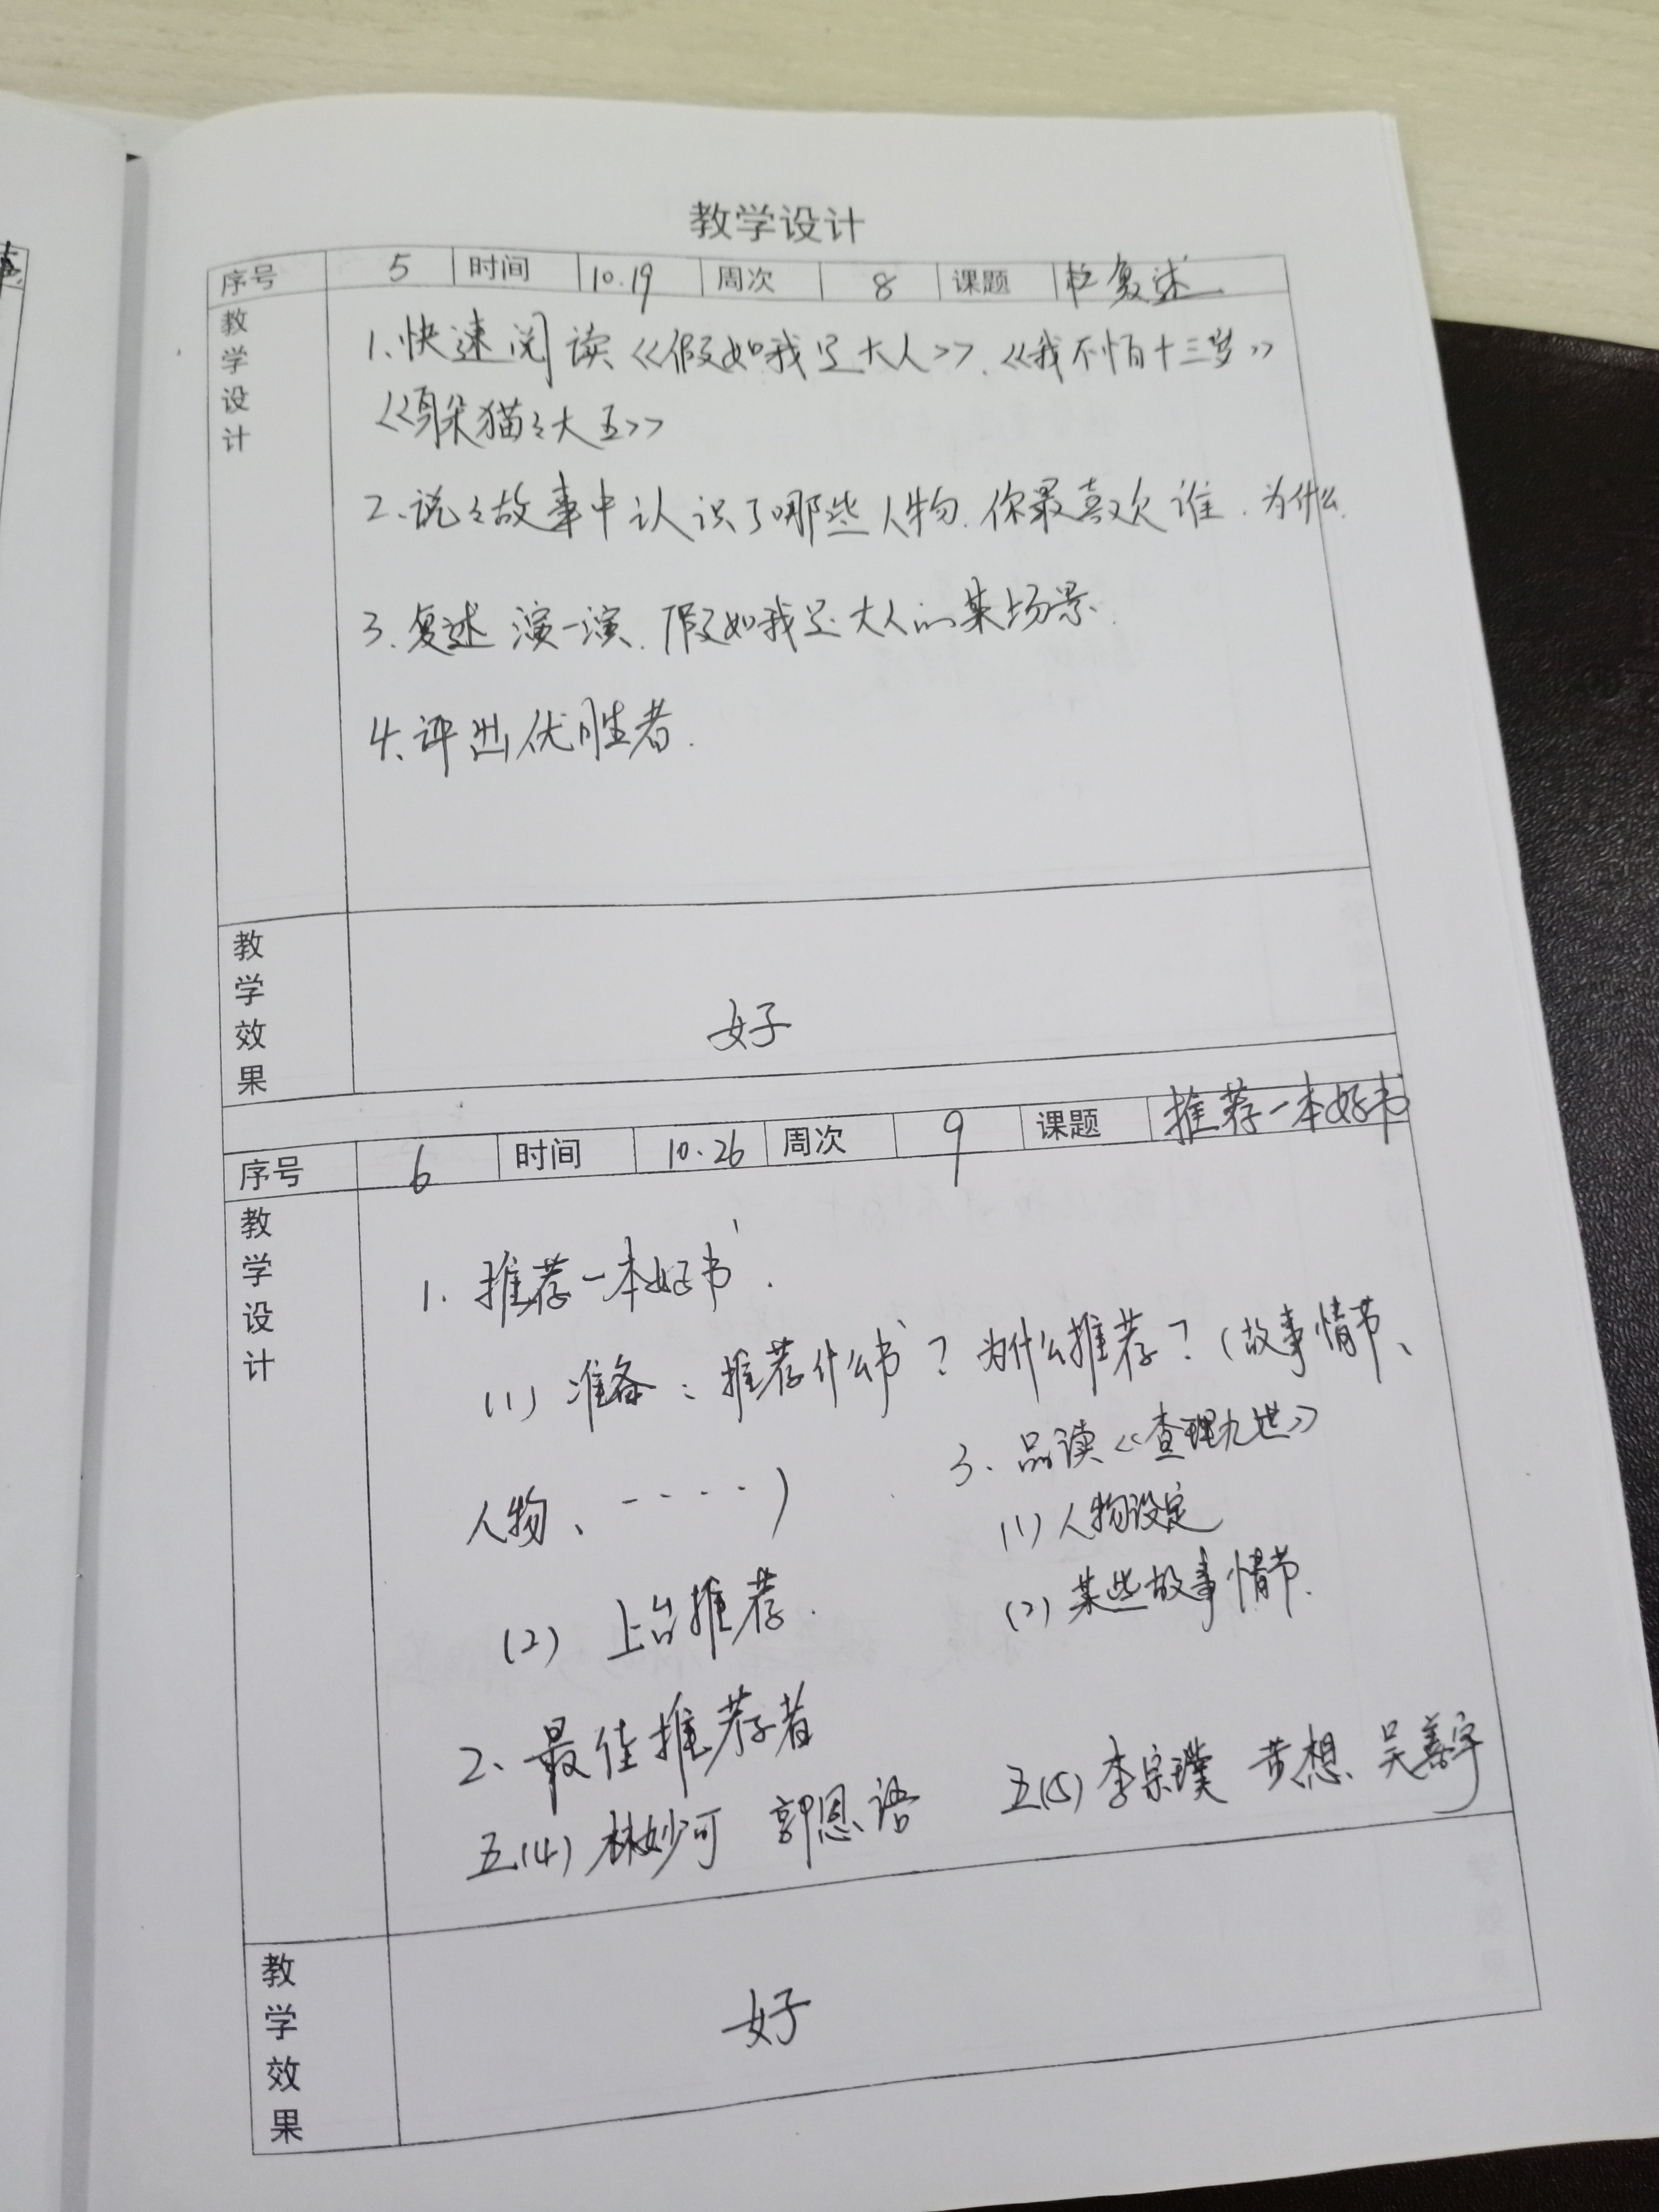 教学设计
序号 5 时间 10.19 周次 8 课题 复述
教学设计
1、快速阅读《假如我是大人》、《我不怕十三岁》
《躲猫々大王》
2、说々故事中认识了哪些人物、你最喜欢谁、为什么、
3、复述 演一演、假如我是大人的某场景、
4、评出优胜者.
教学效果
好
序号 6 时间 10.26 周次 9 课题 推荐一本好书
教学设计
1、推荐一本好书.
(1) 准备：推荐什么书？为什么推荐？(故事情节、
人物、.....)
(2) 上台推荐.
2、最佳推荐者
五(4) 林妙可 郭恩语 五(5) 李宗璞 黄想
3、品读《查理九世》
(1) 人物设定
(2) 某些故事情节.
教学效果
好